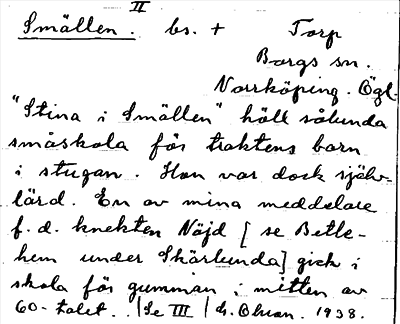 II
Smällen. bs. + Torp
Borgs sn.
Norrköping. Ögl.
"Stina i Smällen" höll sålunda
småskola för traktens barn
i stugan. Hon var dock själv-
lärd. En av mina meddelare
f. d. knekten Nöjd [ se Betle-
hem under Skärlunda] gick i
skola för gumman i mitten av
60-talet. /Se III / 1938.